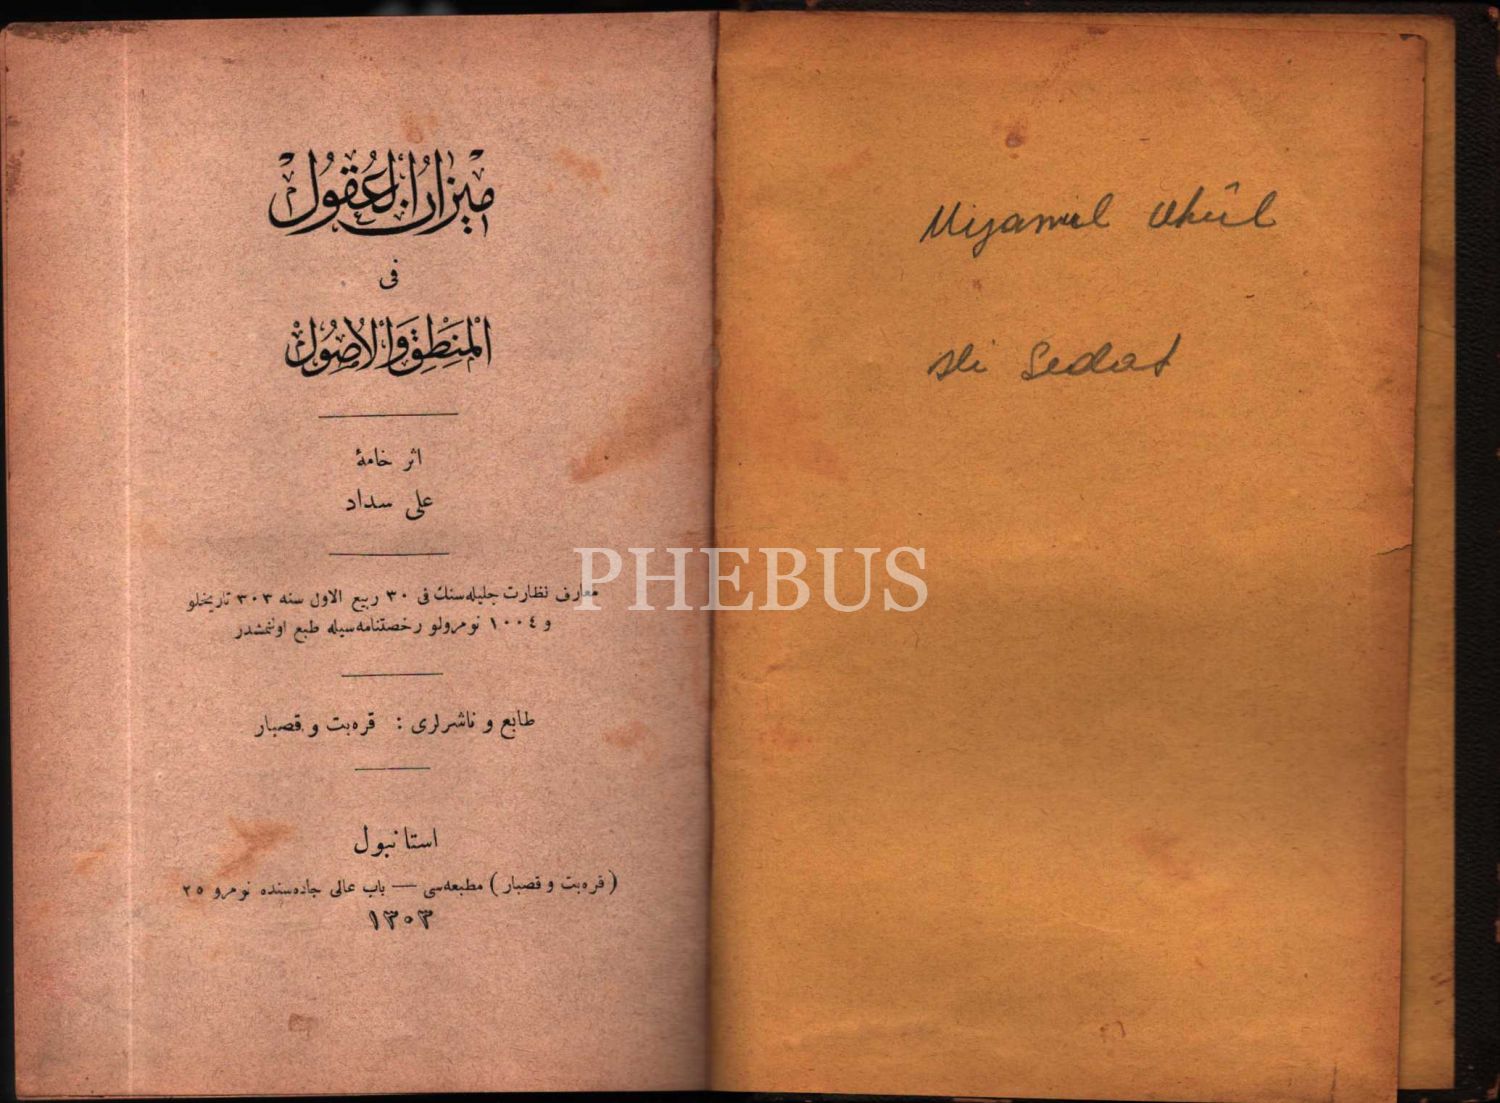 ميزان العقول
فى
المنطق والاصول
اثر خامهٔ
على سداد
معارف نظارت جليله‌سنك فى ٣٠ ربيع الاول سنه ٣٠٣ تاريخلو
و ١٠٠٤ نومرولو رخصتنامه‌سيله طبع اولنمشدر
طابع و ناشرلرى : قره‌بت و قصبار
استانبول
(قره‌بت و قصبار) مطبعه‌سى — باب عالى جاده‌سنده نومرو ٢٥
١٣٠٣
Ukûl
Ali Sedat
PHEBUS